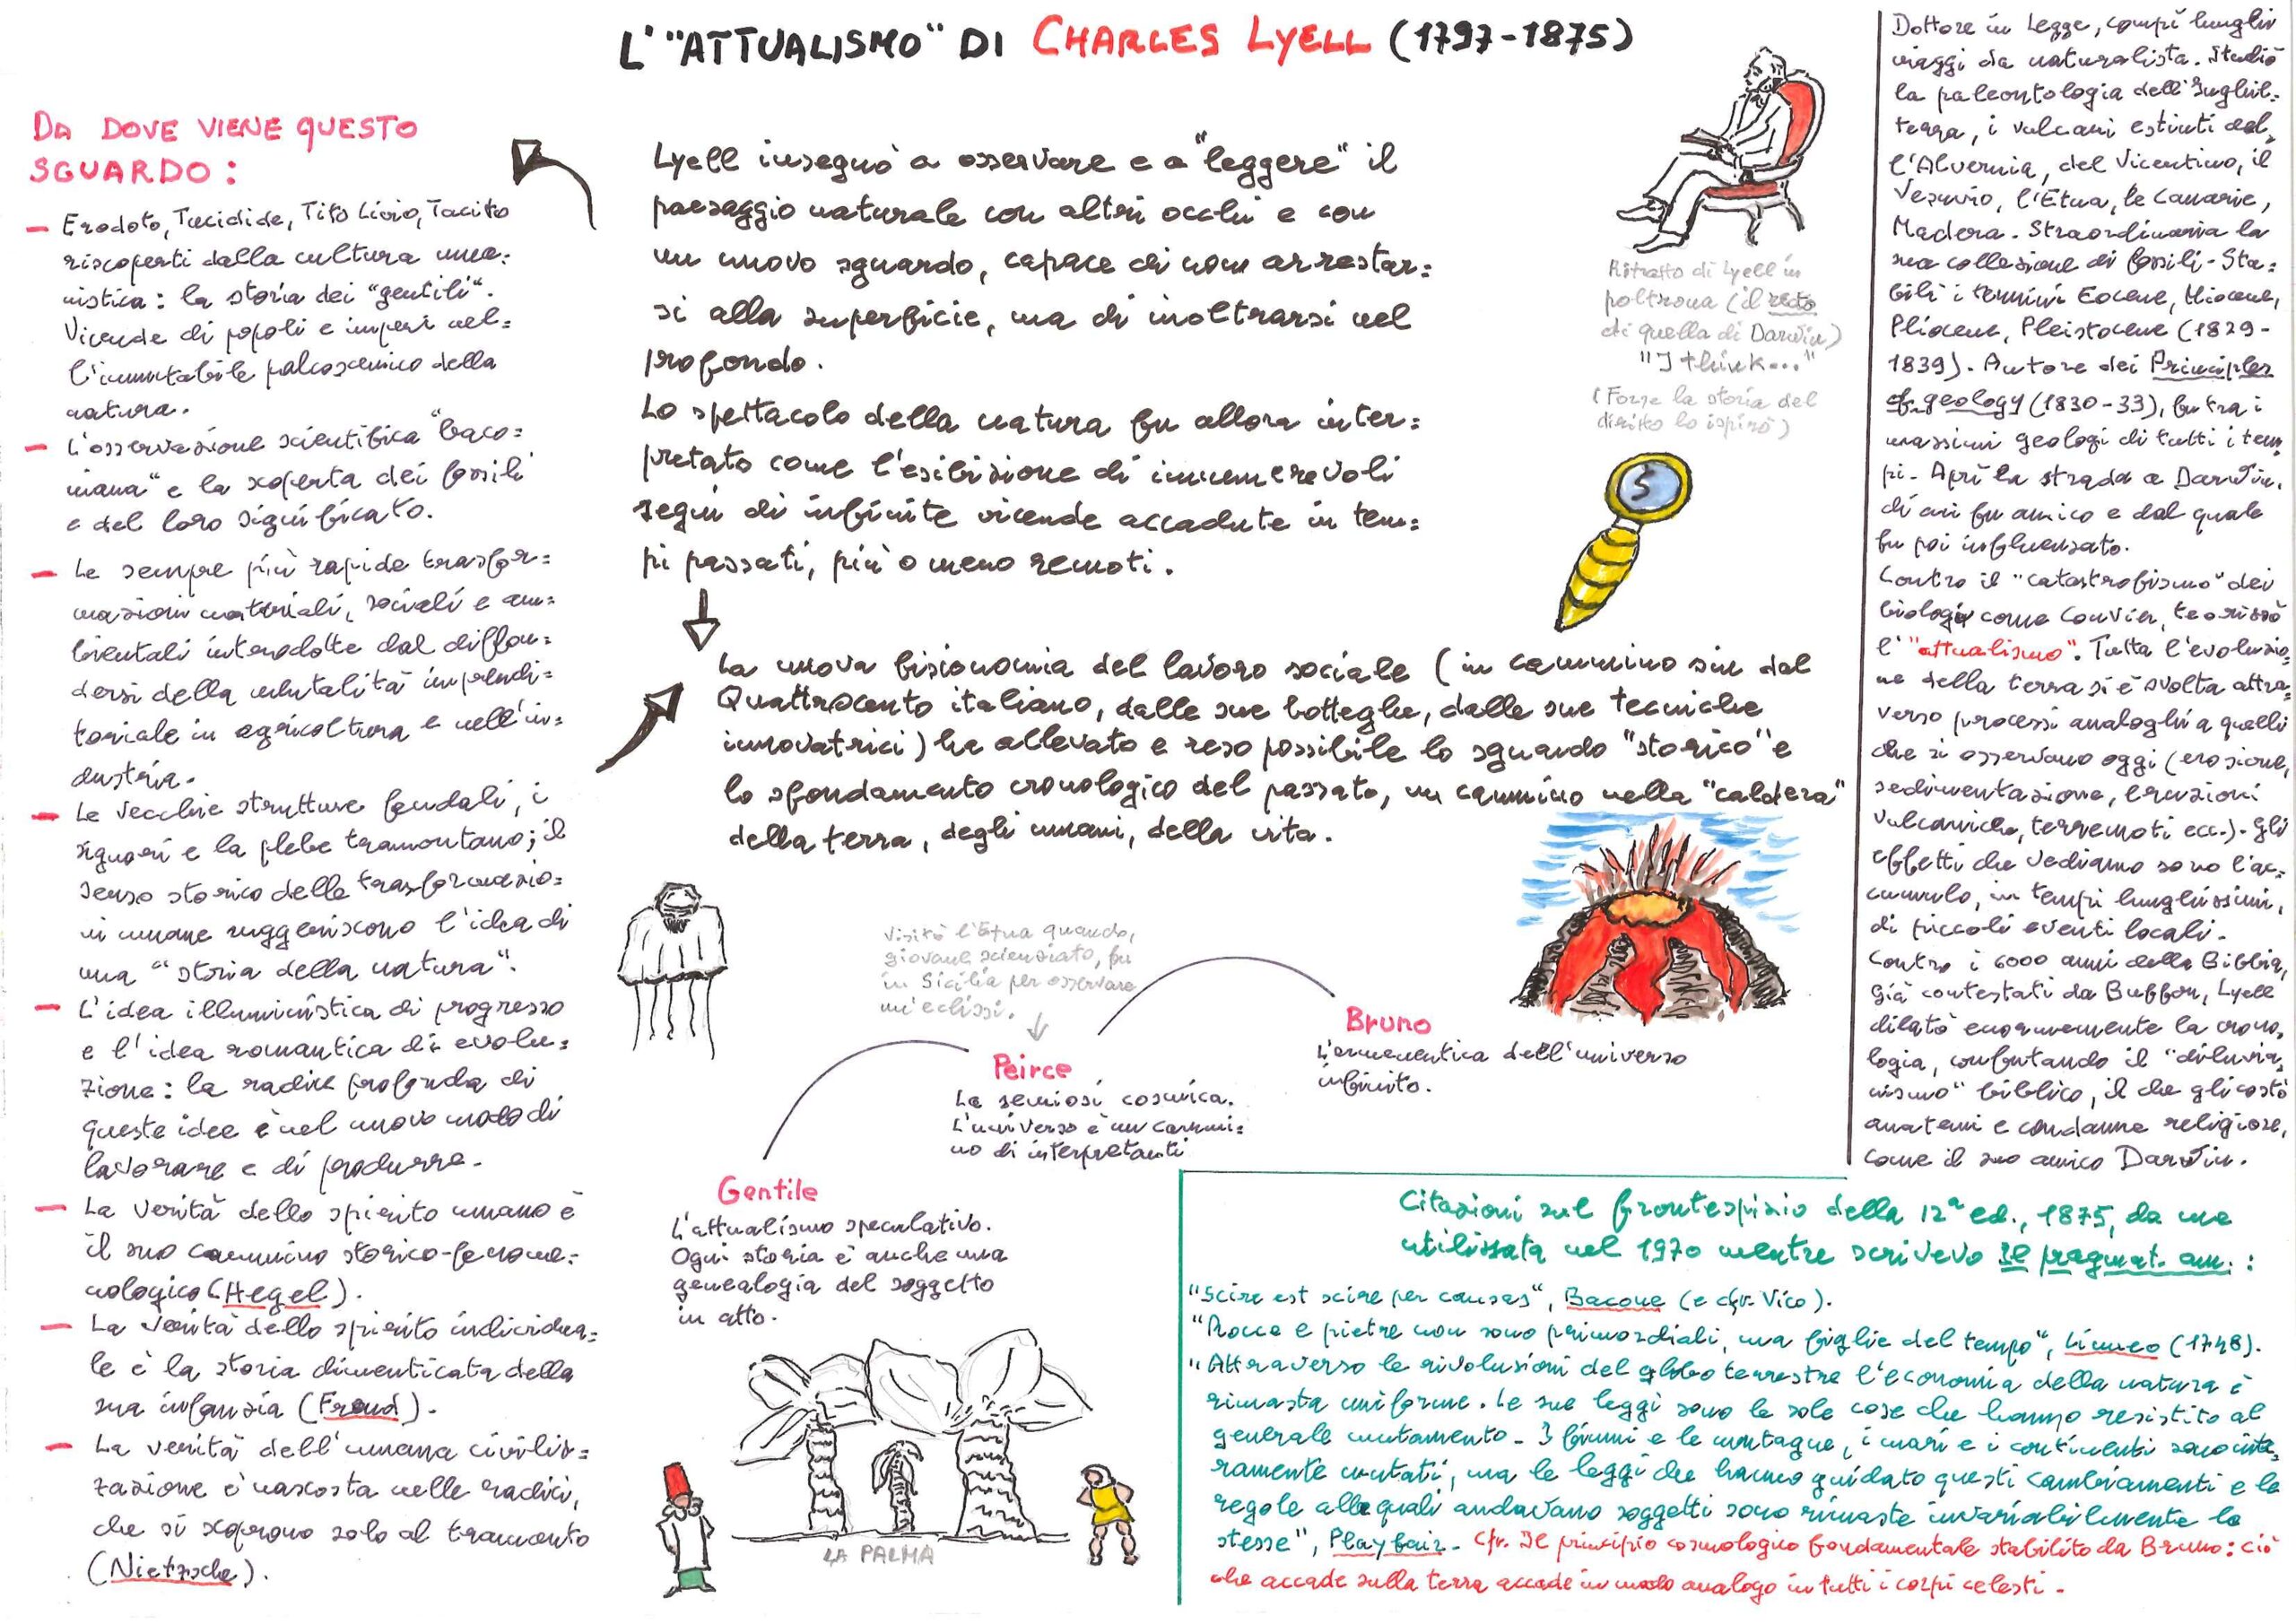 L'"ATTUALISMO" DI CHARLES LYELL (1797-1875)
DA DOVE VIENE QUESTO
SGUARDO:
- Erodoto, Tucidide, Tito Livio, Tacito
riscoperti dalla cultura uma=
nistica: la storia dei "gentili".
Vicende di popoli e imperi nel=
l'immutabile palcoscenico della
natura.
- L'osservazione scientifica "baco=
niana" e la scoperta dei fossili
e del loro significato.
- Le sempre più rapide trasfor=
mazioni materiali, sociali e am=
bientali introdotte dal diffon=
dersi della mentalità imprendi=
toriale in agricoltura e nell'in=
dustria.
- Le vecchie strutture feudali, i
signori e la plebe tramontano; il
senso storico delle trasformazio=
ni umane suggeriscono l'idea di
una "storia della natura".
- L'idea illuministica di progresso
e l'idea romantica di evolu=
zione: la radice profonda di
queste idee è nel nuovo modo di
lavorare e di produrre.
- La verità dello spirito umano è
il suo cammino storico-fenome=
nologico (Hegel).
- La verità dello spirito individua=
le è la storia dimenticata della
sua infanzia (Freud).
- La verità dell'umana civiliz=
zazione è nascosta nelle radici,
che si scoprono solo al tramonto
(Nietzsche).
Lyell insegnò a osservare e a "leggere" il
paesaggio naturale con altri occhi e con
un nuovo sguardo, capace di non arrestar=
si alla superficie, ma di inoltrarsi nel
profondo.
Lo spettacolo della natura fu allora inter=
pretato come l'esibizione di innumerevoli
segni di infinite vicende accadute in tem=
pi passati, più o meno remoti.
La nuova fisionomia del lavoro sociale (in cammino sin dal
Quattrocento italiano, dalle sue botteghe, dalle sue tecniche
innovatrici) ha allevato e reso possibile lo sguardo "storico" e
lo sfondamento cronologico del passato, un cammino nella "caldera"
della terra, degli umani, della vita.
Ritratto di Lyell in
poltrona (il resto
di quella di Darwin)
"I think..."
(Forse la storia del
diritto lo ispirò)
S
Visitò l'Etna quando,
giovane scienziato, fu
in Sicilia per osservare
un'eclissi.
Peirce
La semiosi cosmica.
L'universo è un cammi=
no di interpretanti
Bruno
L'ermeneutica dell'universo
infinito.
Gentile
L'attualismo speculativo.
Ogni storia è anche una
genealogia del soggetto
in atto.
LA PALMA
Dottore in Legge, compì lunghi
viaggi da naturalista. Studiò
la paleontologia dell'Inghil=
terra, i vulcani estinti del=
l'Alvernia, del Vicentino, il
Vesuvio, l'Etna, le Canarie,
Madera. Straordinaria la
sua collezione di fossili. Sta=
bilì i termini Eocene, Miocene,
Pliocene, Pleistocene (1829-
1839). Autore dei Principles
of geology (1830-33), fu tra i
massimi geologi di tutti i tem=
pi. Aprì la strada a Darwin,
di cui fu amico e dal quale
fu poi influenzato.
Contro il "catastrofismo" dei
biologi come Couvier, teorizzò
l'"attualismo". Tutta l'evoluzio=
ne della terra si è svolta attra=
verso processi analoghi a quelli
che si osservano oggi (erosione,
sedimentazione, eruzioni
vulcaniche, terremoti ecc.). Gli
effetti che vediamo sono l'ac=
cumulo, in tempi lunghissimi,
di piccoli eventi locali.
Contro i 6000 anni della Bibbia,
già contestati da Buffon, Lyell
dilatò enormemente la crono=
logia, confutando il "diluvia=
nismo" biblico, il che gli costò
anatemi e condanne religiose,
come il suo amico Darwin.
Citazioni sul frontespizio della 12ª ed., 1875, da me
utilizzata nel 1970 mentre scrivevo Il pragmat. am.:
"Scire est scire per causas", Bacone (e cfr. Vico).
"Rocce e pietre non sono primordiali, ma figlie del tempo", Linneo (1748).
"Attraverso le rivoluzioni del globo terrestre l'economia della natura è
rimasta uniforme. Le sue leggi sono le sole cose che hanno resistito al
generale mutamento. I fiumi e le montagne, i mari e i continenti sono inte=
ramente mutati, ma le leggi che hanno guidato questi cambiamenti e le
regole alle quali andavano soggetti sono rimaste invariabilmente le
stesse", Playfair. Cfr. Il principio cosmologico fondamentale stabilito da Bruno: ciò
che accade sulla terra accade in modo analogo in tutti i corpi celesti.